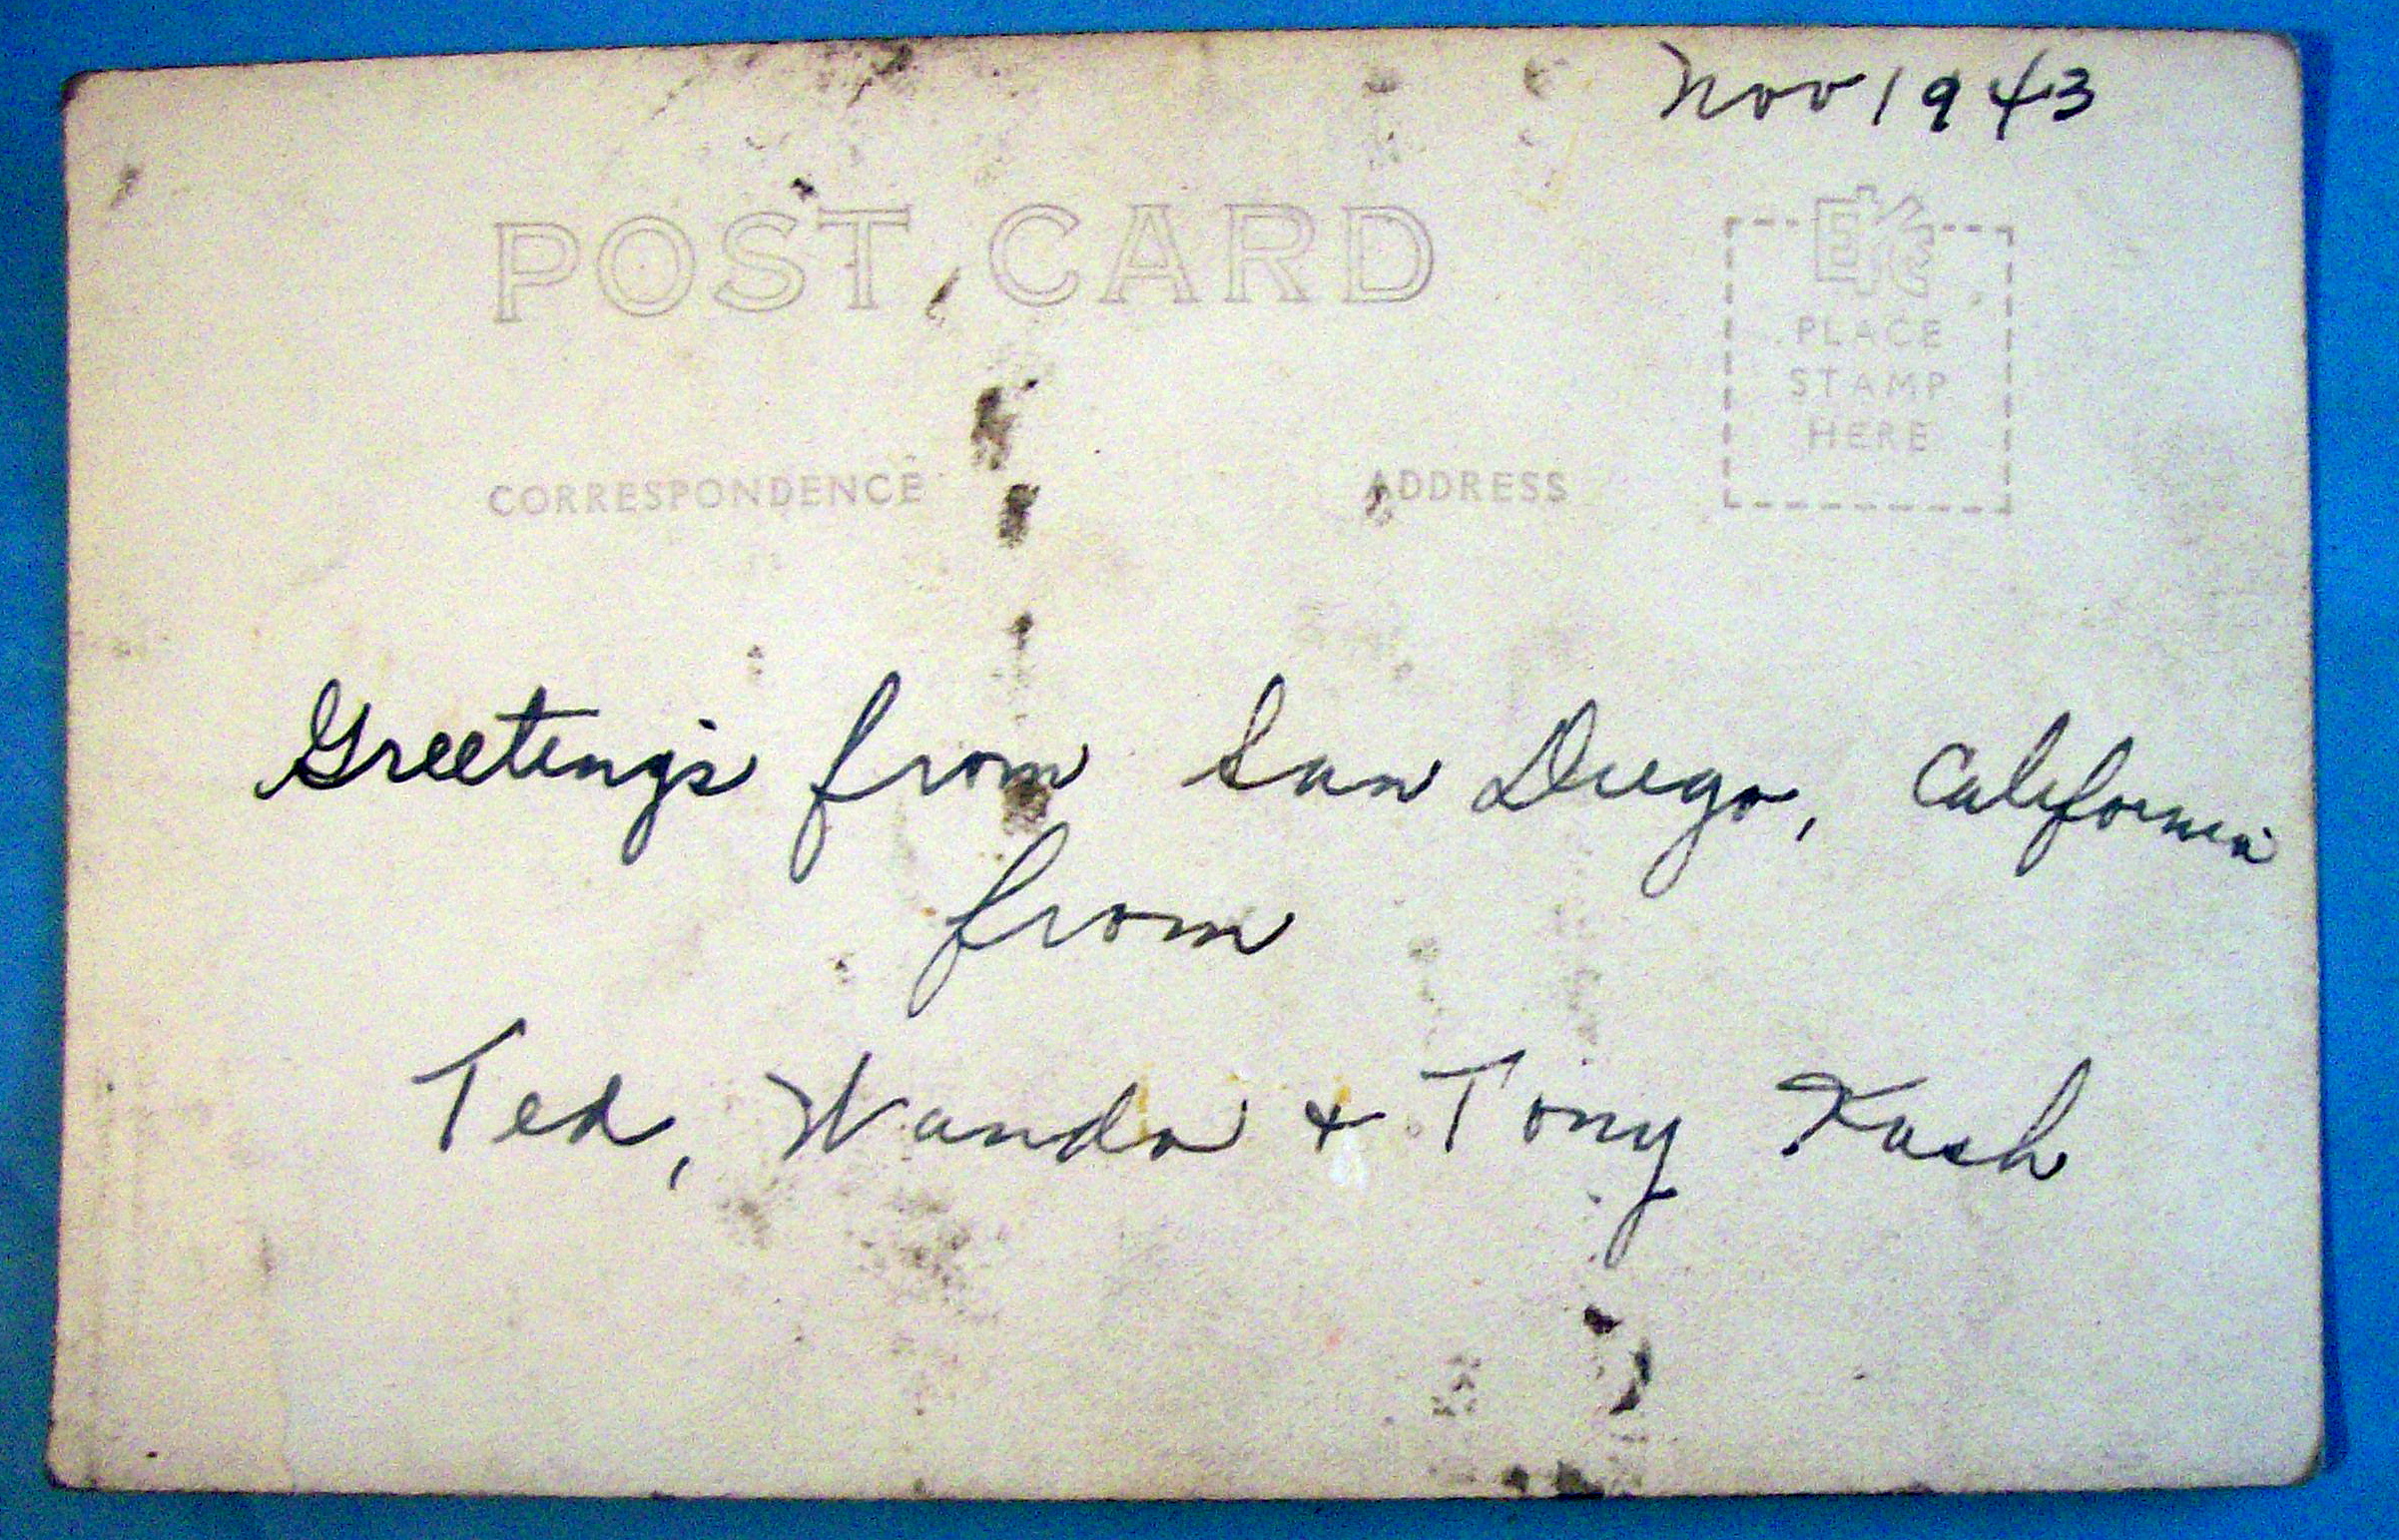 Nov 1943
POST CARD
EKC
PLACE
STAMP
HERE
CORRESPONDENCE ADDRESS
Greetings from San Diego, California
from
Ted, Wanda + Tony Kash